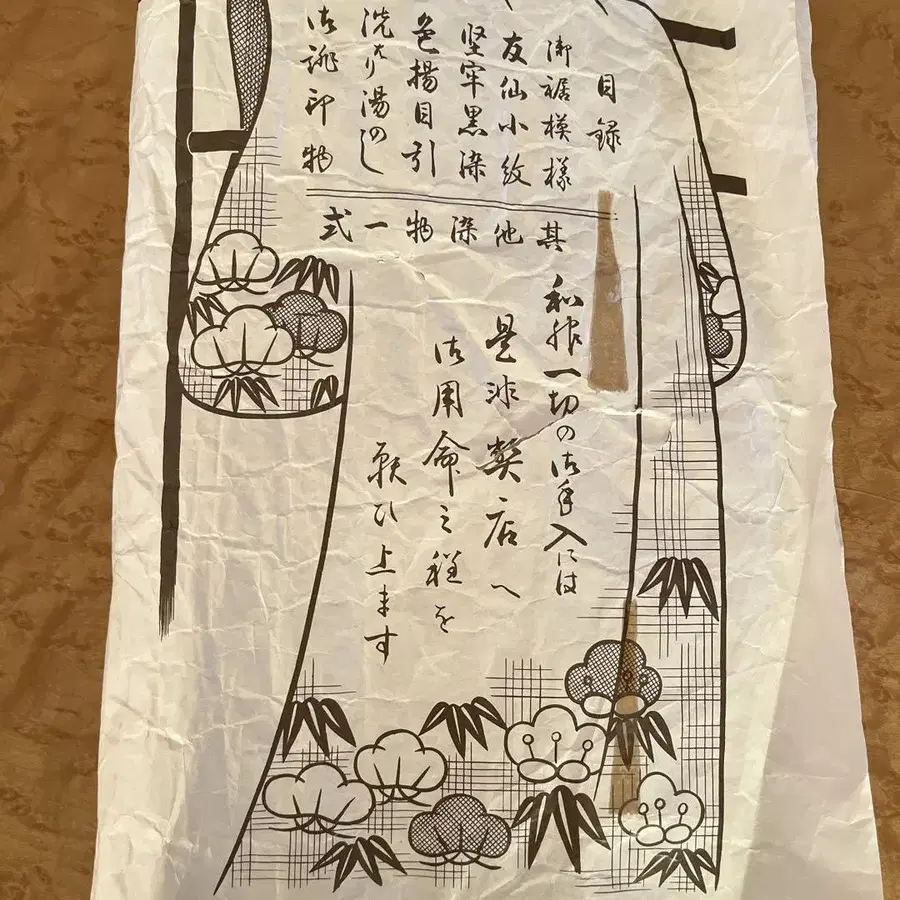 目録
御裾模様
友仙小紋
堅牢黒染
色揚目引
洗はり湯のし
御誂印物
其他染物一式
和服一切の御手入には
是非弊店へ
御用命之程を
願ひ上ます